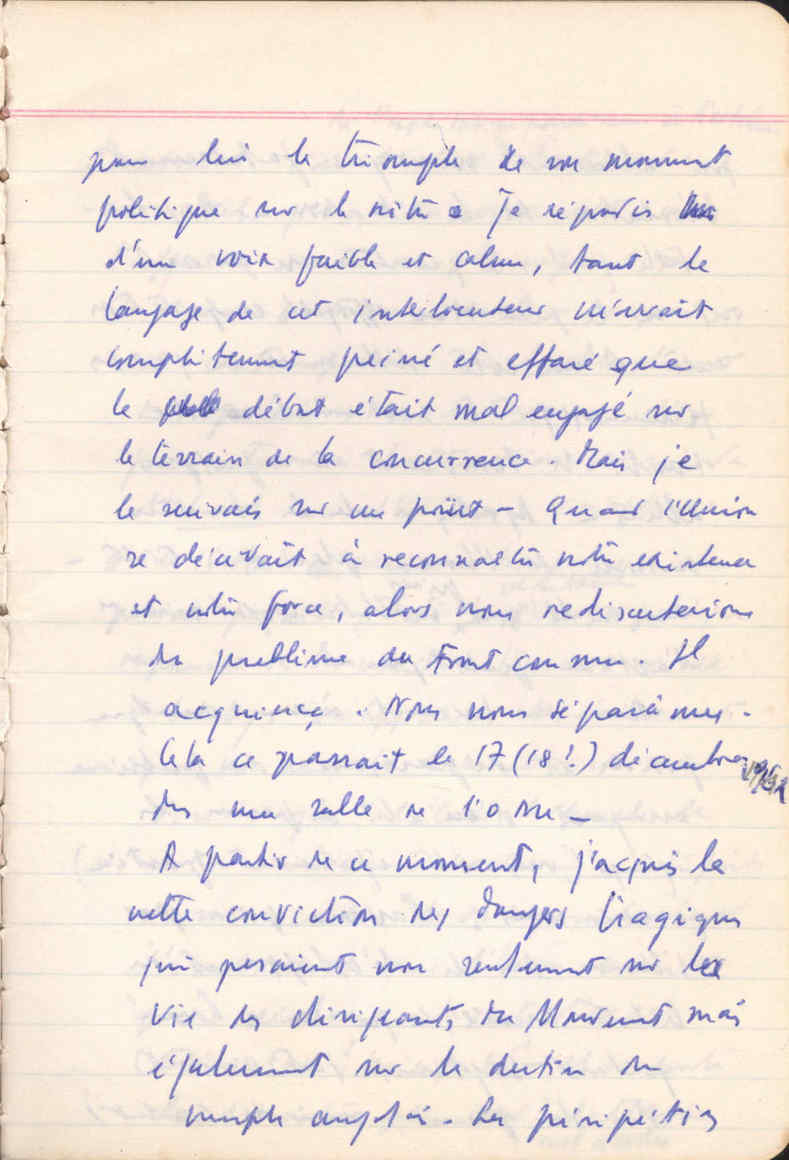 pour lui le triomphe de son mouvement
politique sur le nôtre. Je répondis
d'une voix faible et calme, tant le
langage de cet interlocuteur m'avait
complètement peiné et effaré que
le début était mal engagé sur
le terrain de la concurrence. Mais je
le suivais sur un point - Quand l'Union
se décidait à reconnaître notre existence
et notre force, alors nous rediscuterions
du problème du Front commun. Il
acquiesça. Nous nous séparâmes.
Cela ce passait le 17 (18!) décembre
dans une salle de l'ONU -
A partir de ce moment, j'acquis la
nette conviction des dangers tragiques
qui pesaient non seulement sur la
vie des dirigeants du Mouvement mais
également sur le destin du
peuple angolais. Les péripéties